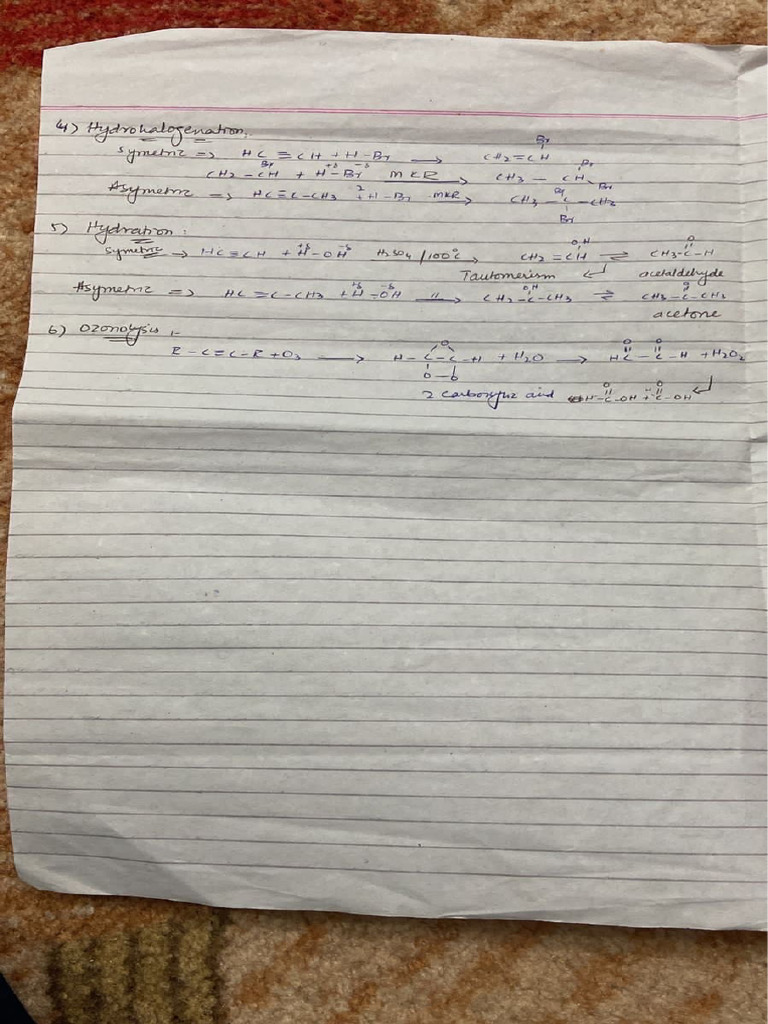 4) Hydrohalogenation:
Symetric => HC ≡ CH + H-Br → CH2 = CH Br
CH2 - CH Br + H+δ - Br-δ MKR → CH3 - CH Br Br
Asymetric => HC ≡ C - CH3 + 2 H-Br MKR → CH3 - C - CH3 Br Br
5) Hydration :
Symetric → HC ≡ CH + H+δ - OH-δ H2SO4 / 100°C → CH2 = CH OH ⇌ CH3 - C - H O
Tautomerism ↲ acetaldehyde
Asymetric => HC ≡ C - CH3 + H+δ - OH-δ " → CH2 - C - CH3 OH ⇌ CH3 - C - CH3 O
acetone
6) Ozonolysis :-
R - C ≡ C - R + O3 → H - C - C - H O O - O + H2O → HC - C - H O O + H2O2
2 carboxylic acid H - C - OH O + H - C - OH O ↲